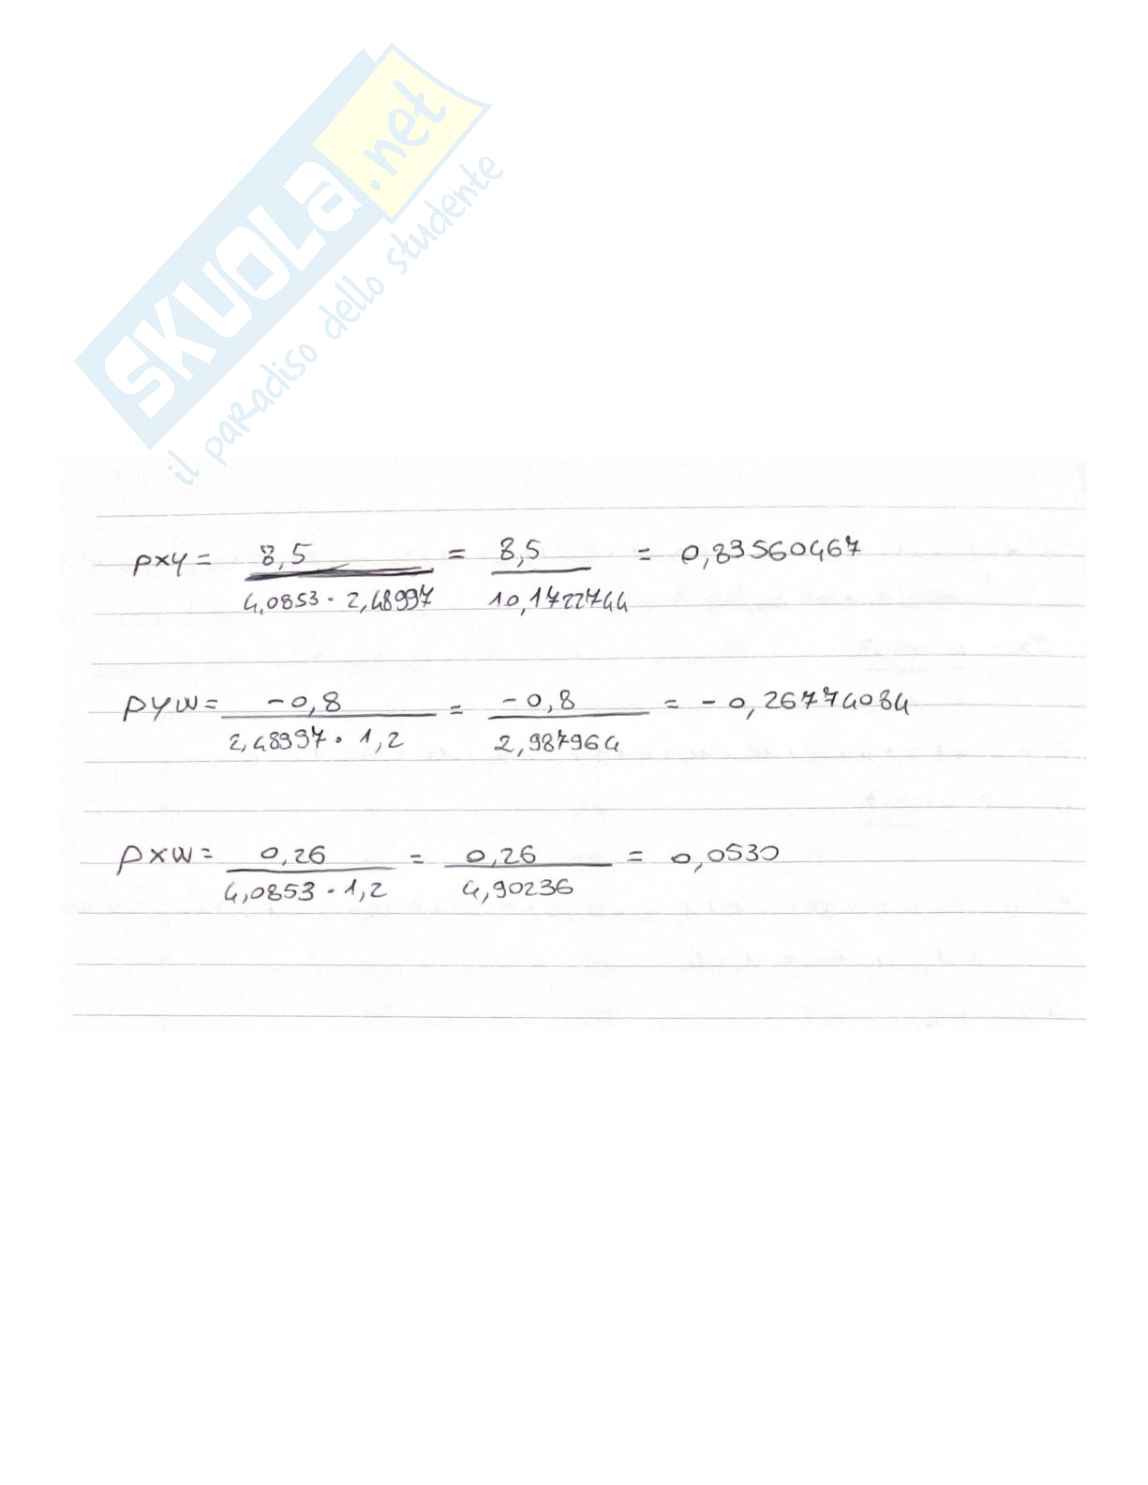 SKUOLA.net
il paradiso dello studente
ρxy = 8,5 / 4,0853 · 2,48997 = 8,5 / 10,1722744 = 0,83560467
ρyw = -0,8 / 2,48997 · 1,2 = -0,8 / 2,987964 = -0,26774084
ρxw = 0,26 / 4,0853 · 1,2 = 0,26 / 4,90236 = 0,0530